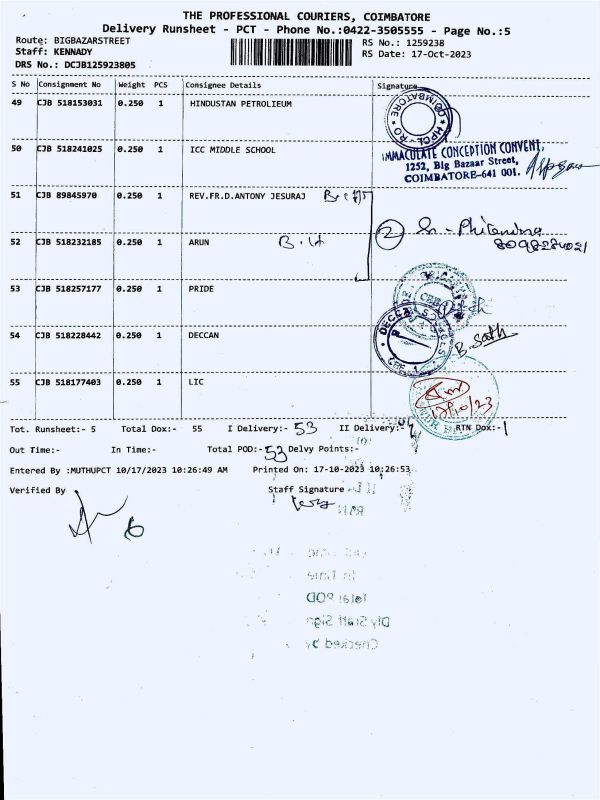 THE PROFESSIONAL COURIERS, COIMBATORE
Delivery Runsheet - PCT - Phone No.:0422-3505555 - Page No.:5
Route: BIGBAZARSTREET
RS No.: 1259238
Staff: KENNADY
RS Date: 17-Oct-2023
DRS No.: DCJB125923805
S No Consignment No Weight PCS Consignee Details Signature
49 CJB 518153031 0.250 1 HINDUSTAN PETROLIEUM
COIMBATORE HPCL-RO
50 CJB 518241025 0.250 1 ICC MIDDLE SCHOOL
IMMACULATE CONCEPTION CONVENT,
1252, Big Bazaar Street,
COIMBATORE-641 001.
51 CJB 89845970 0.250 1 REV.FR.D.ANTONY JESURAJ
52 CJB 518232185 0.250 1 ARUN
2
53 CJB 518257177 0.250 1 PRIDE
54 CJB 518228442 0.250 1 DECCAN
B. Sath
55 CJB 518177403 0.250 1 LIC
Tot. Runsheet:- 5 Total Dox:- 55 I Delivery:- 53 II Delivery:- RTN Dox:- 1
Out Time:- In Time:- Total POD:- 53 Delvy Points:-
Entered By :MUTHUPCT 10/17/2023 10:26:49 AM Printed On: 17-10-2023 10:26:53
Verified By Staff Signature
In Time
Total POD
Dly Staff Sign
Checked by